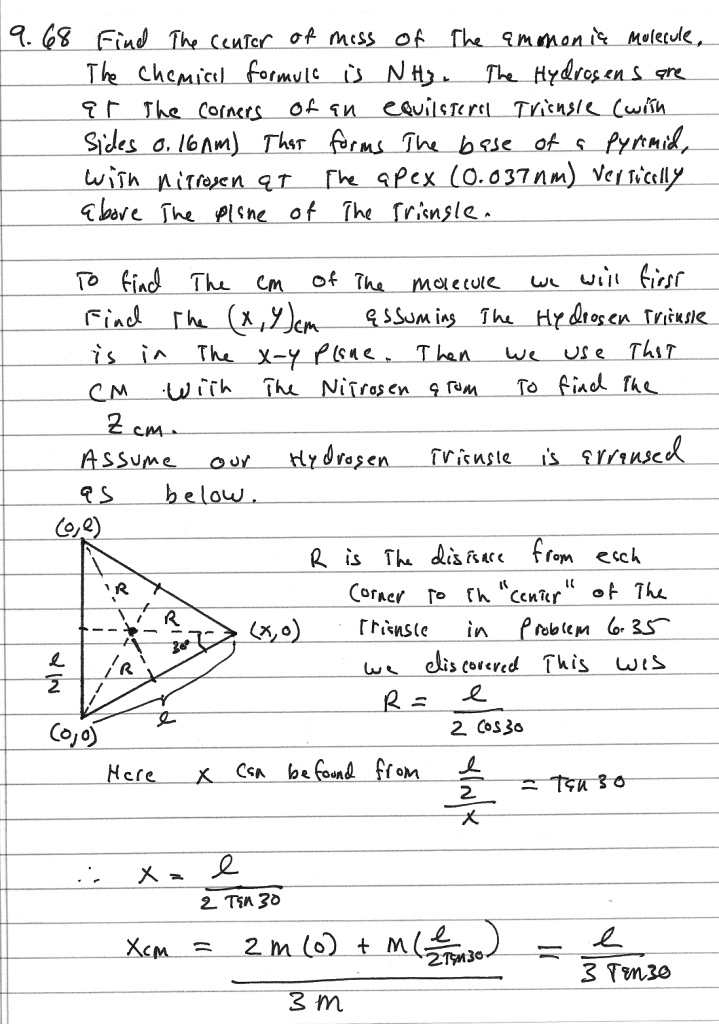 9.68 Find The center of mass of The ammonia molecule,
The Chemical formula is NH3. The Hydrogens are
at The corners of an equilateral Triangle (with
Sides 0.16nm) That forms The base of a Pyramid,
with nitrogen at The apex (0.037nm) vertically
above The plane of The Triangle.
To find The cm of The molecule we will first
Find The (x,y)cm assuming The Hydrogen Triangle
is in The x-y plane. Then we use That
CM With The Nitrogen atom To find The
Zcm.
Assume our Hydrogen Triangle is arranged
as below.
(0,l)
R is The distance from each
Corner To Th "center" of The
Triangle in Problem 6.35
we discovered This was
R = l / 2 cos30
R
R
30°
(x,0)
R
l/2
l
(0,0)
Here x can be found from (l/2)/x = Tan 30
∴ x = l / 2 Tan 30
Xcm = (2m(0) + m(l/2Tan30)) / 3m = l / 3 Tan30